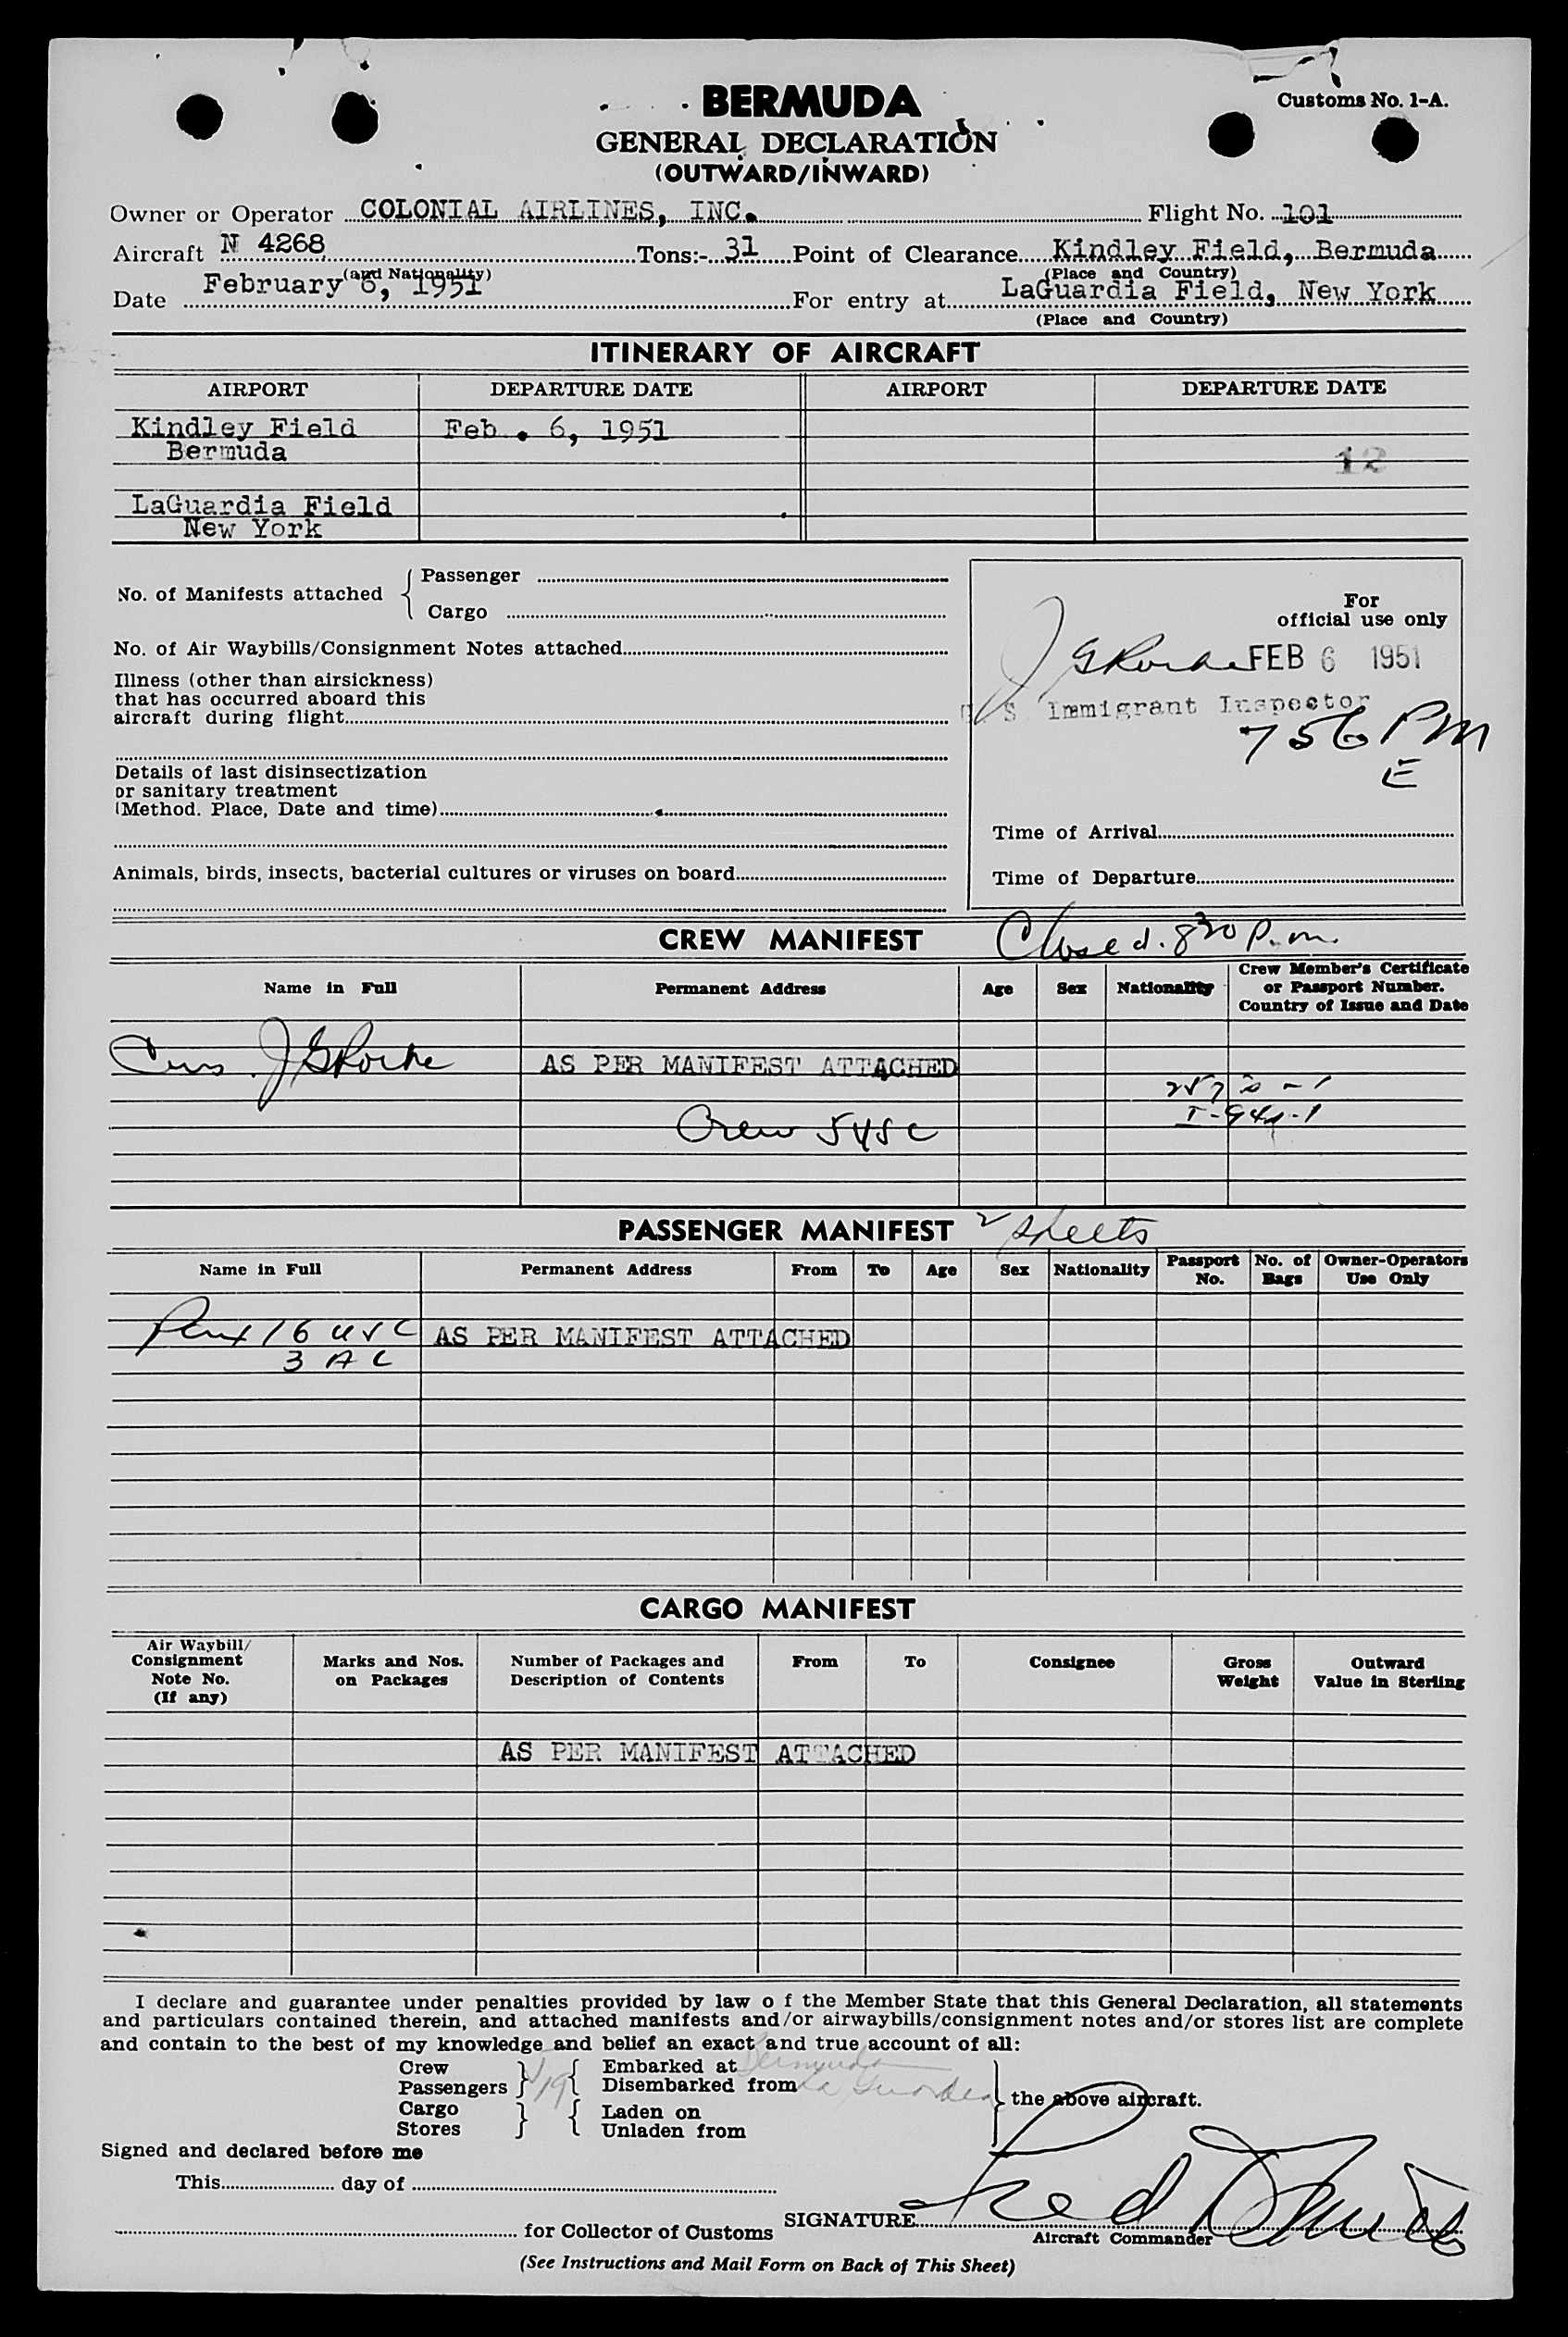 BERMUDA
Customs No. 1-A.
GENERAL DECLARATION
(OUTWARD/INWARD)
Owner or Operator COLONIAL AIRLINES, INC. Flight No. 101
Aircraft N 4268 Tons:- 31 Point of Clearance Kindley Field, Bermuda
(and Nationality) (Place and Country)
Date February 6, 1951 For entry at LaGuardia Field, New York
(Place and Country)
ITINERARY OF AIRCRAFT
AIRPORT DEPARTURE DATE AIRPORT DEPARTURE DATE
Kindley Field Feb. 6, 1951
Bermuda
12
LaGuardia Field
New York
No. of Manifests attached { Passenger
Cargo
No. of Air Waybills/Consignment Notes attached
Illness (other than airsickness)
that has occurred aboard this
aircraft during flight
Details of last disinsectization
or sanitary treatment
(Method. Place, Date and time)
Animals, birds, insects, bacterial cultures or viruses on board
For
official use only
FEB 6 1951
U. S. Immigrant Inspector
756 PM
E
Time of Arrival
Time of Departure
CREW MANIFEST Closed. 8 30 P.m.
Name in Full Permanent Address Age Sex Nationality Crew Member's Certificate
or Passport Number.
Country of Issue and Date
AS PER MANIFEST ATTACHED
Crew 5 USC
PASSENGER MANIFEST 2 sheets
Name in Full Permanent Address From To Age Sex Nationality Passport No. No. of Bags Owner-Operators Use Only
16 USC AS PER MANIFEST ATTACHED
3 A C
CARGO MANIFEST
Air Waybill/
Consignment
Note No.
(If any)
Marks and Nos.
on Packages
Number of Packages and
Description of Contents
From To Consignee
Gross
Weight
Outward
Value in Sterling
AS PER MANIFEST ATTACHED
I declare and guarantee under penalties provided by law o f the Member State that this General Declaration, all statements
and particulars contained therein, and attached manifests and/or airwaybills/consignment notes and/or stores list are complete
and contain to the best of my knowledge and belief an exact and true account of all:
Crew } { Embarked at Bermuda
Passengers } 19 { Disembarked from La Guardia } the above aircraft.
Cargo } { Laden on
Stores } { Unladen from
Signed and declared before me
This day of
for Collector of Customs SIGNATURE
Aircraft Commander
(See Instructions and Mail Form on Back of This Sheet)